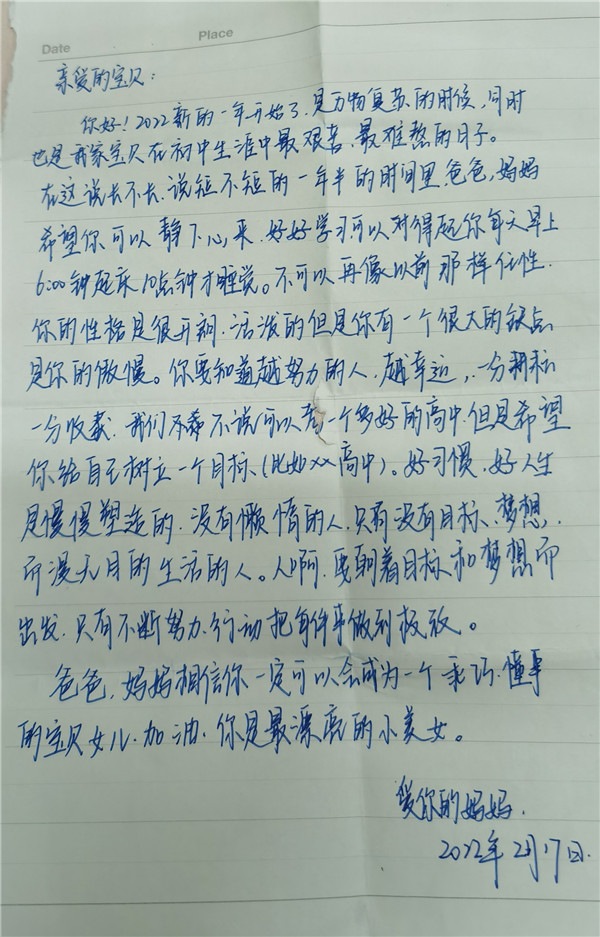 Date
Place
亲爱的宝贝：
你好！2022新的一年开始了，是万物复苏的时候，同时
也是我家宝贝在初中生涯中最艰苦、最难熬的日子。
在这说长不长、说短不短的一年半的时间里，爸爸，妈妈
希望你可以静下心来，好好学习可以对得起你每天早上
6:00钟起床10点钟才睡觉。不可以再像以前那样任性.
你的性格是很开朗、活泼的但是你有一个很大的缺点
是你的傲慢。你要知道越努力的人，越幸运，一分耕耘
一分收获，我们不说可以考一个多好的高中，但是希望
你给自己树立一个目标、(比如xx高中)。好习惯，好人生
是慢慢塑造的，没有懒惰的人，只有没有目标、梦想，
而漫无目的生活的人。人啊，要朝着目标和梦想而
出发，只有不断努力、行动把每件事做到极致。
爸爸，妈妈相信你一定可以会成为一个乖巧、懂事
的宝贝女儿.加油.你是最漂亮的小美女。
爱你的妈妈.
2022年2月17日.